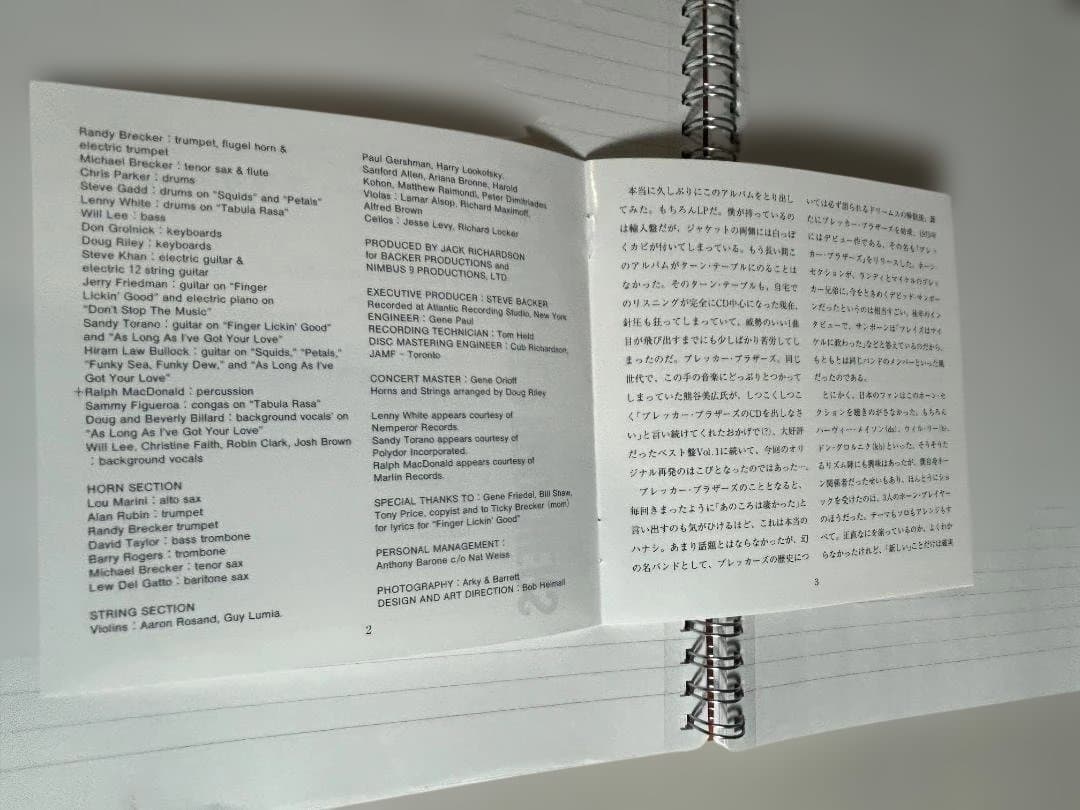 Randy Brecker : trumpet, flugel horn &
electric trumpet
Michael Brecker : tenor sax & flute
Chris Parker : drums
Steve Gadd : drums on "Squids" and "Petals"
Lenny White : drums on "Tabula Rasa"
Will Lee : bass
Don Grolnick : keyboards
Doug Riley : keyboards
Steve Khan : electric guitar &
electric 12 string guitar
Jerry Friedman : guitar on "Finger
Lickin' Good" and electric piano on
"Don't Stop The Music"
Sandy Torano : guitar on "Finger Lickin' Good"
and "As Long As I've Got Your Love"
Hiram Law Bullock : guitar on "Squids," "Petals,"
"Funky Sea, Funky Dew," and "As Long As I've
Got Your Love"
+Ralph MacDonald : percussion
Sammy Figueroa : congas on "Tabula Rasa"
Doug and Beverly Billard : background vocals' on
"As Long As I've Got Your Love"
Will Lee, Christine Faith, Robin Clark, Josh Brown
: background vocals
HORN SECTION
Lou Marini : alto sax
Alan Rubin : trumpet
Randy Brecker trumpet
David Taylor : bass trombone
Barry Rogers : trombone
Michael Brecker : tenor sax
Lew Del Gatto : baritone sax
STRING SECTION
Violins : Aaron Rosand, Guy Lumia.
Paul Gershman, Harry Lookofsky.
Sanford Allen, Ariana Bronne, Harold
Kohon, Matthew Raimondi, Peter Dimitriades
Violas : Lamar Alsop, Richard Maximoff,
Alfred Brown
Cellos : Jesse Levy, Richard Locker
PRODUCED BY JACK RICHARDSON
for BACKER PRODUCTIONS and
NIMBUS 9 PRODUCTIONS, LTD
EXECUTIVE PRODUCER : STEVE BACKER
Recorded at Atlantic Recording Studio, New York
ENGINEER : Gene Paul
RECORDING TECHNICIAN : Tom Heid
DISC MASTERING ENGINEER : Cub Richardson,
JAMF - Toronto
CONCERT MASTER : Gene Orloff
Horns and Strings arranged by Doug Riley
Lenny White appears courtesy of
Nemperor Records.
Sandy Torano appears courtesy of
Polydor Incorporated.
Ralph MacDonald appears courtesy of
Marlin Records.
SPECIAL THANKS TO : Gene Friedel, Bill Shaw,
Tony Price, copyist and to Ticky Brecker (mom)
for lyrics for "Finger Lickin' Good"
PERSONAL MANAGEMENT :
Anthony Barone c/o Nat Weiss
PHOTOGRAPHY : Arky & Barrett
DESIGN AND ART DIRECTION : Bob Heimall
2
本当に久しぶりにこのアルバムをとり出し
てみた。もちろんLPだ。僕が持っているの
は輸入盤だが、ジャケットの両側には白っぽ
くカビが付いてしまっている。もう長い間こ
のアルバムがターン・テーブルにのることは
なかった。そのターン・テーブルも、自宅で
のリスニングが完全にCD中心になった現在、
針圧も狂ってしまっていて、威勢のいい1曲
目が飛び出すまでにも少しばかり苦労してし
まったのだ。ブレッカー・ブラザーズ。同じ
世代で、この手の音楽にどっぷりとつかって
しまっていた熊谷美広氏が、しつこくしつこ
く「ブレッカー・ブラザーズのCDを出しなさ
い」と言い続けてくれたおかげで(?)、大好評
だったベスト盤Vol.1に続いて、今回のオリ
ジナル再発のはこびとなったのではあった…。
ブレッカー・ブラザーズのこととなると、
毎回きまったように「あのころは凄かった」と
言い出すのも気がひけるほど、これは本当の
ハナシ。あまり話題とはならなかったが、幻
の名バンドとして、ブレッカーズの歴史につ
いては必ず語られるドリームスの解散後、新
たにブレッカー・ブラザーズを結成、1975年
にはデビュー作である、その名も「ブレッ
カー・ブラザーズ」をリリースした。ホーン・
セクションが、ランディとマイケルのブレッ
カー兄弟に、今をときめくデビッド・サンボー
ンだったというのは相当すごい。後年のイン
タビューで、サンボーンは「フレイズはマイ
ケルに教わった」などと答えているのだから、
もともとは同じバンドのメンバーといった風
だったのである。
とにかく、日本のファンはこのホーン・セ
クションを聴きのがさなかった。もちろん
ハーヴィー・メイソン(ds)、ウィル・リー(b)、
ドン・グロルニク(kb)といった、そうそうた
るリズム陣にも興味はあったが、僕自身ホー
ン関係者だったせいもあり、ほんとうにショ
ックを受けたのは、3人のホーン・プレイヤー
のほうだった。テーマもソロもアレンジもす
べて。正直なにを演っているのか、よくわか
らなかったけれど、「新しい」ことだけは確実
3